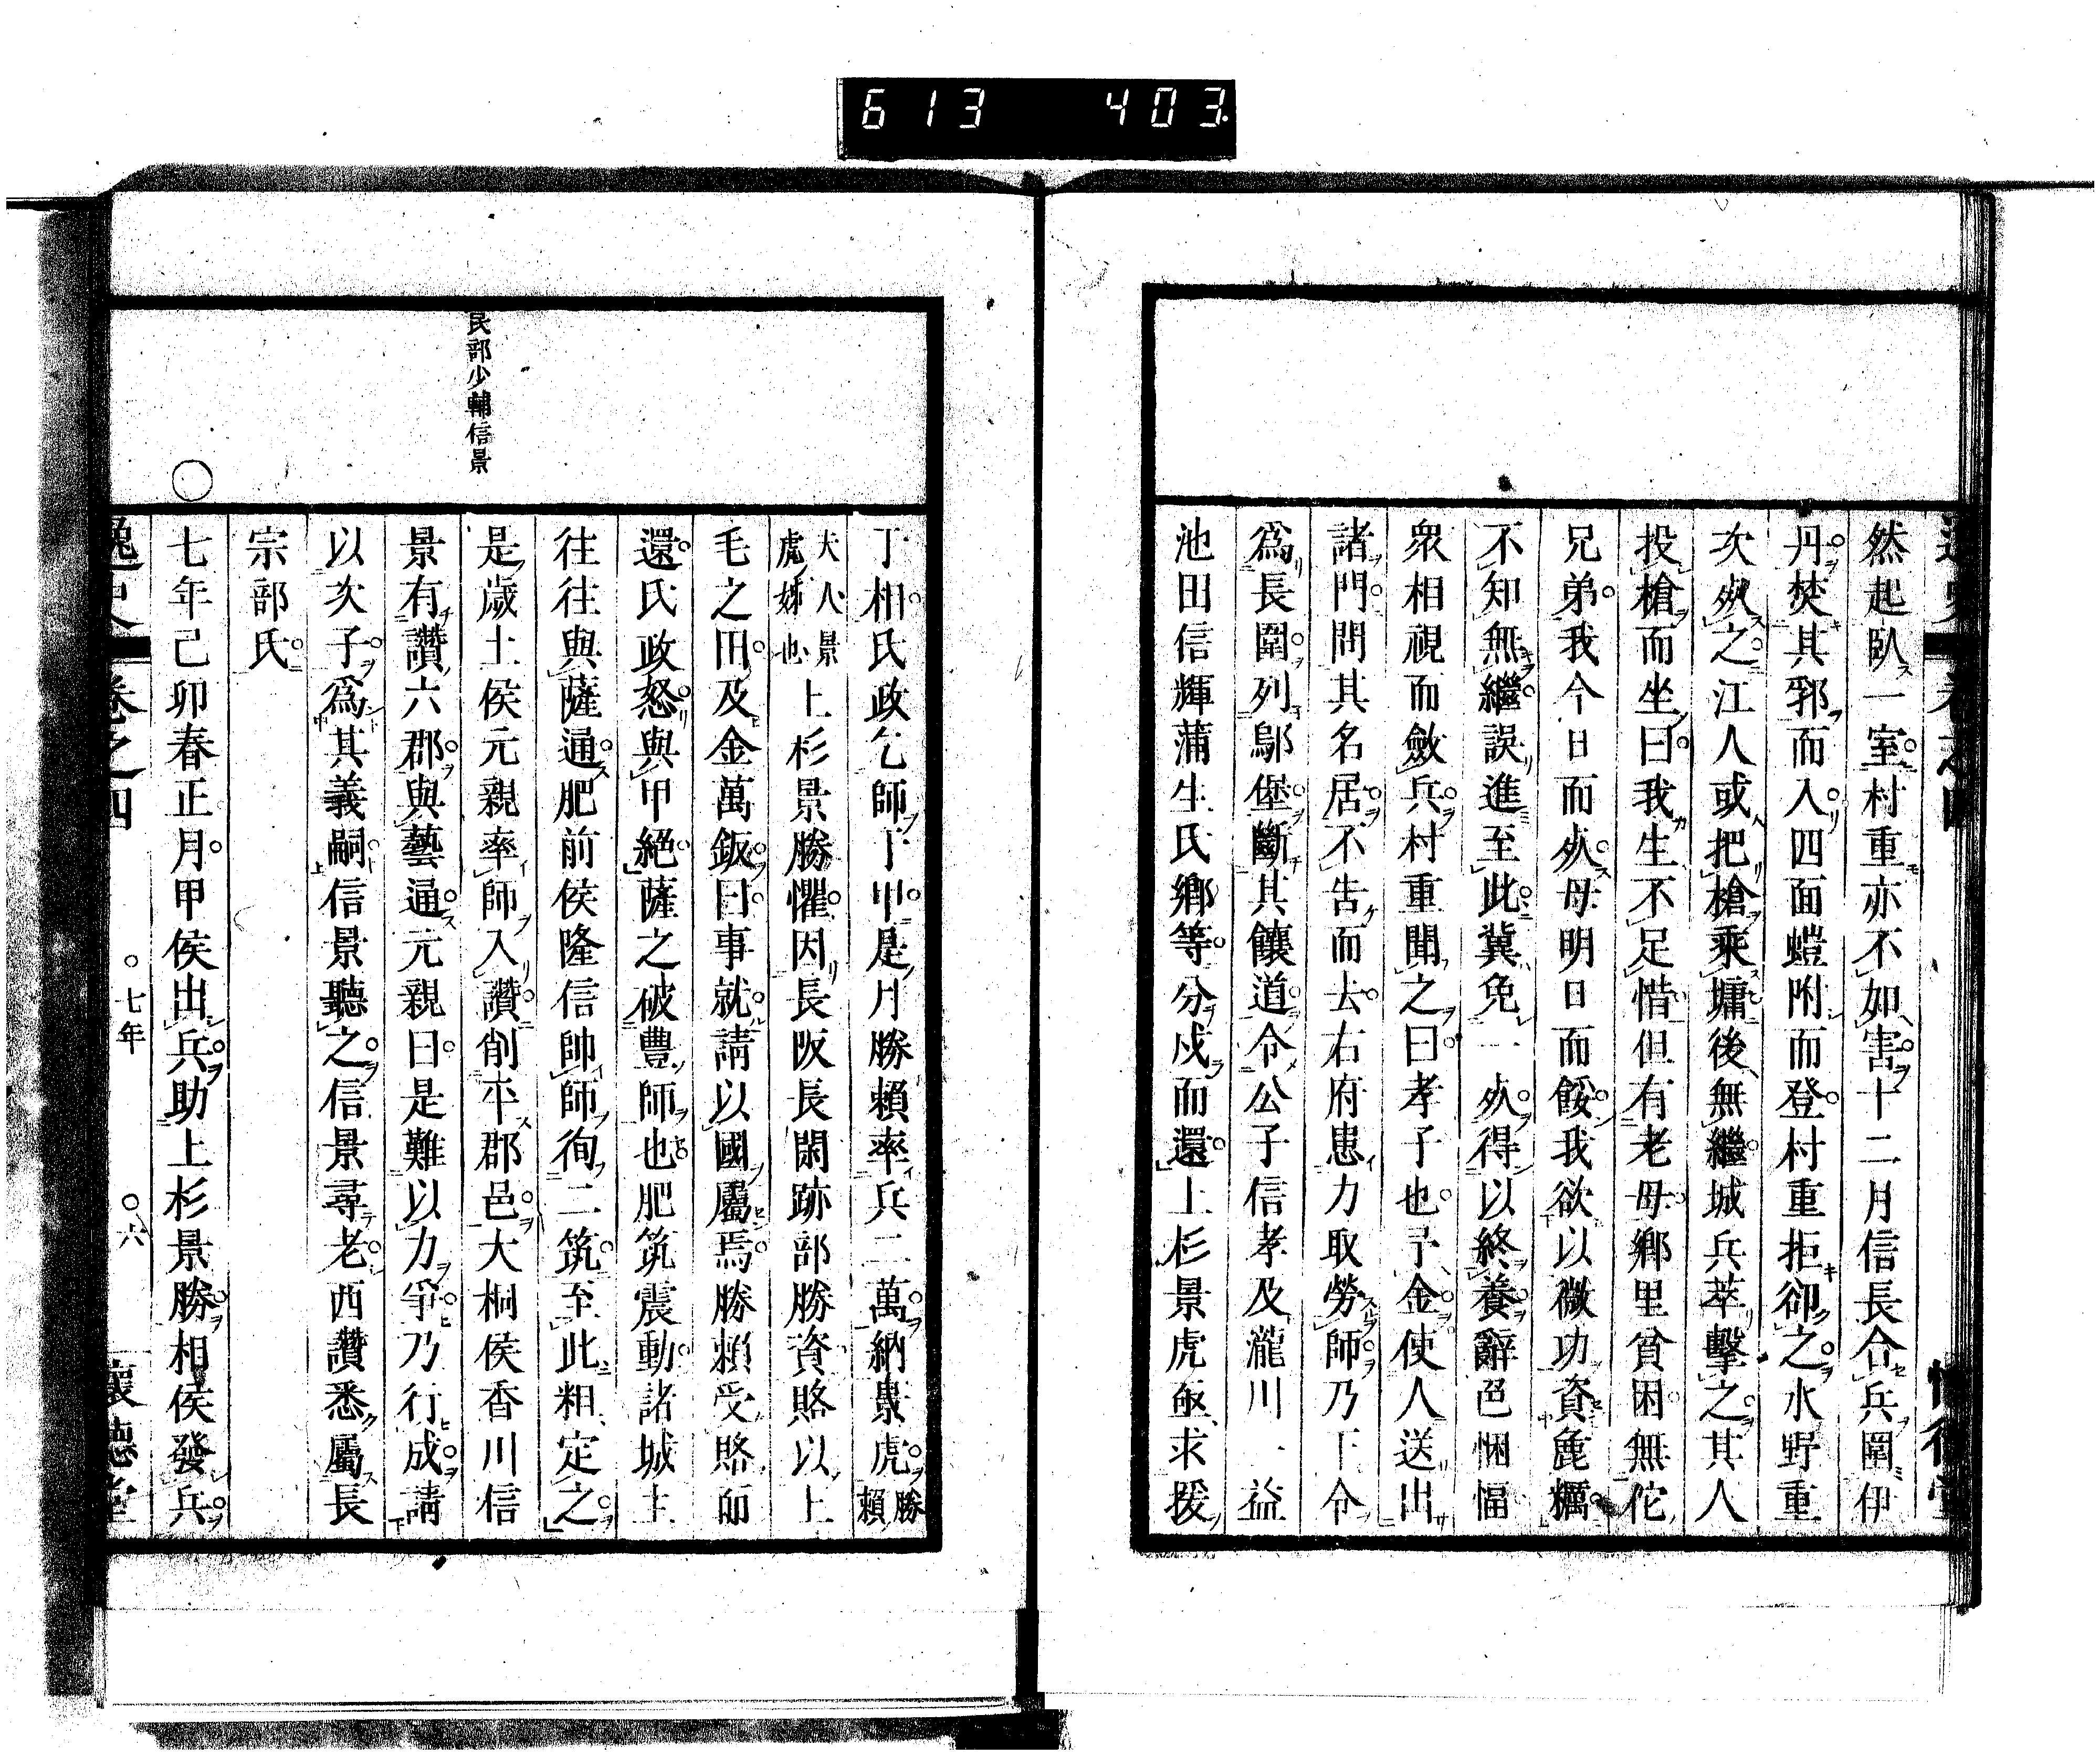 613 403
逸史 卷之四 懷德堂
然起臥一室村重亦不如害十二月信長合兵圍伊
丹焚其郛而入四面螘附而登村重拒卻之水野重
次死之江人或把槍乘墉後無繼城兵萃擊之其人
投槍而坐曰我生不足惜但有老母鄉里貧困無佗
兄弟我今日而死母明日而餒我欲以微功資麁糲
不知無繼誤進至此冀免一死得以終養辭色悃愊
衆相視而斂兵村重聞之曰孝子也予金使人送出
諸門問其名居不告而去右府患力取勞師乃下令
爲長圍列鄔堡斷其饟道令公子信孝及瀧川一益
池田信輝蒲生氏鄉等分戍而還上杉景虎亟求援
丁相氏政乞師丁甲是月勝賴率兵二萬納景虎勝賴
大人景虎姊也上杉景勝懼因長阪長閑跡部勝資賂以上
毛之田及金萬鈑曰事就請以國屬焉勝賴受賂而
還氏政怒與甲絕薩之破豐師也肥筑震動諸城主
往往與薩通肥前侯隆信帥師徇二筑至此粗定之
民部少輔信景
是歲土侯元親率師入讚削平郡邑大桐侯香川信
景有讚六郡與藝通元親曰是難以力爭乃行成請
以次子爲其義嗣信景聽之信景尋老西讚悉屬長
宗部氏
〇
七年己卯春正月甲侯出兵助上杉景勝相侯發兵
逸史 卷之四 〇七年 〇六 懷德堂